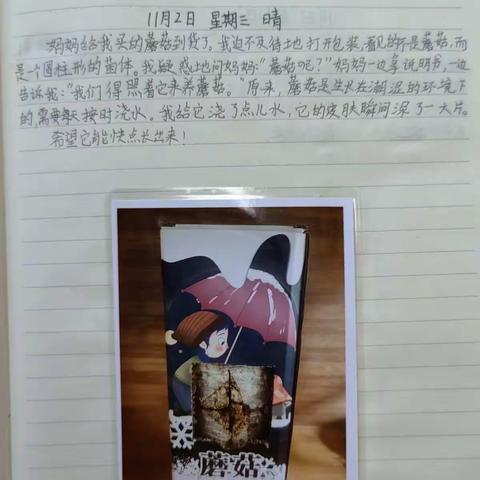 11月2日 星期三 晴
妈妈给我买的蘑菇到货了。我迫不及待地打开包装,看见的不是蘑菇,而
是一个圆柱形的菌体。我疑惑地问妈妈:“蘑菇呢?”妈妈一边拿说明书,一边
告诉我:“我们得照着它来养蘑菇。”原来,蘑菇是生长在潮湿的环境下
的,需要每天按时浇水。我给它浇了点儿水,它的皮肤瞬间深了一大片。
希望它能快点长出来!
蘑菇